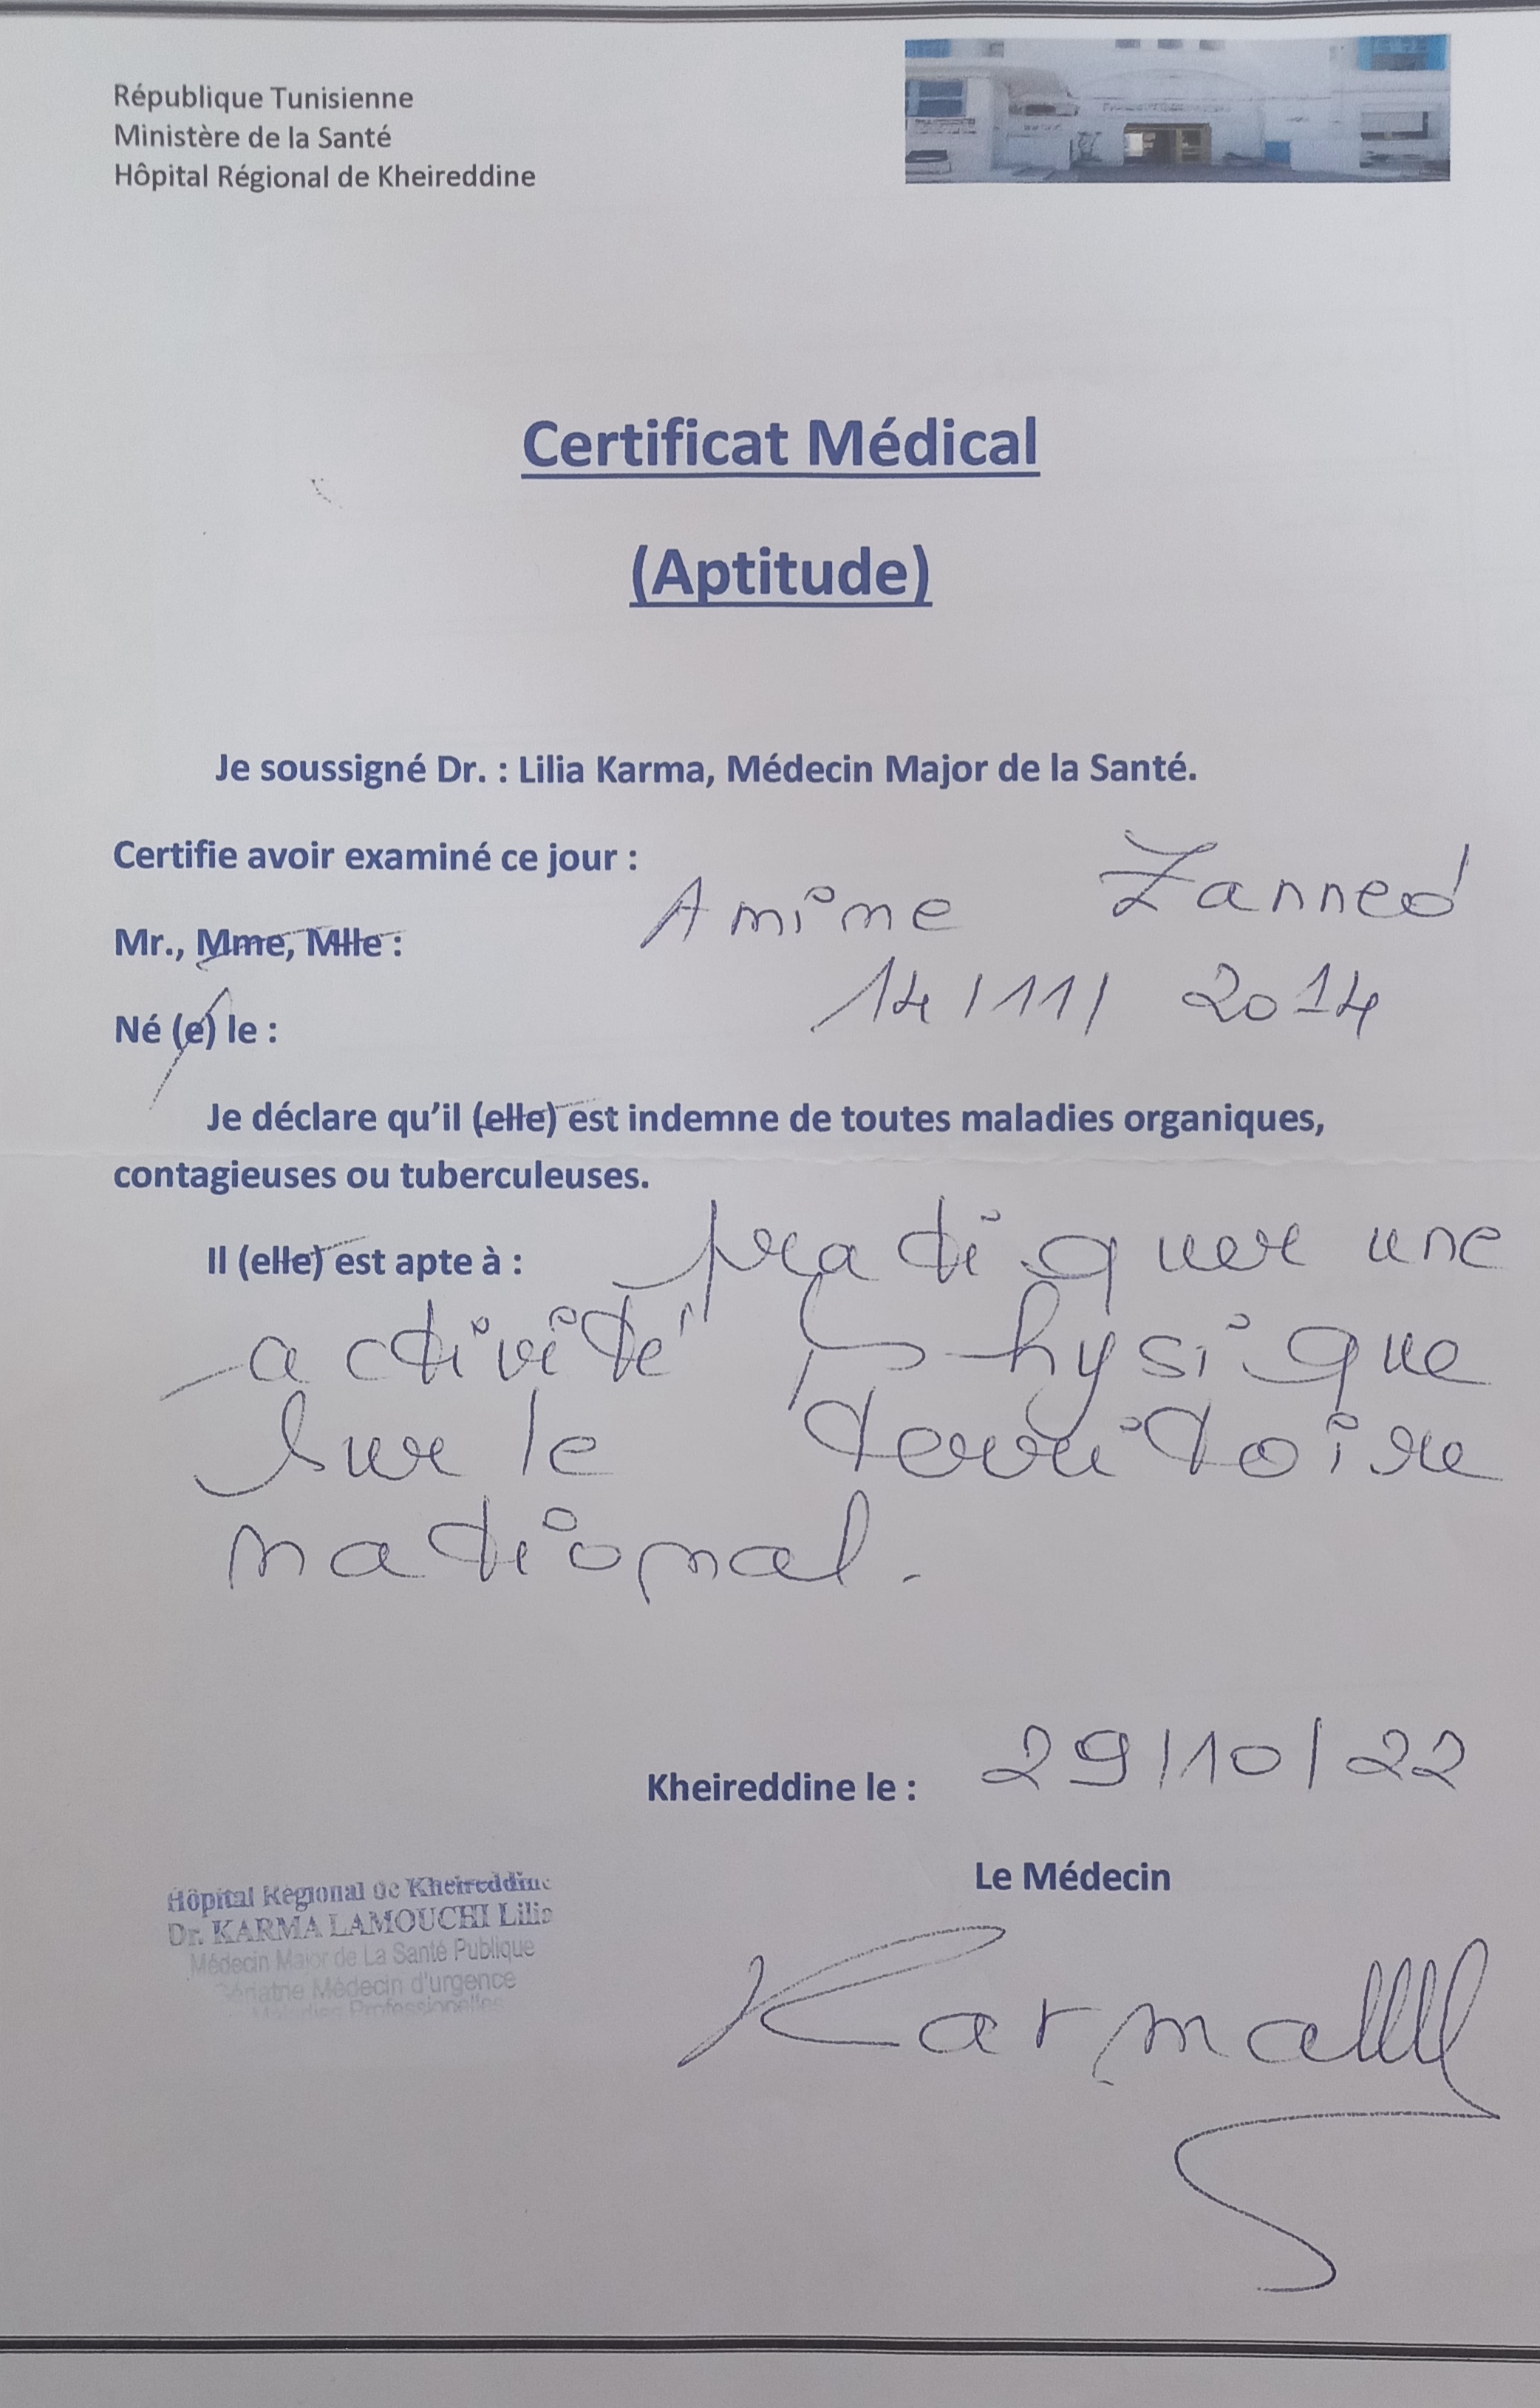 République Tunisienne
Ministère de la Santé
Hôpital Régional de Kheireddine
Certificat Médical
(Aptitude)
Je soussigné Dr. : Lilia Karma, Médecin Major de la Santé.
Certifie avoir examiné ce jour :
Mr., Mme, Mlle : Amine Zanned
Né (e) le : 14/11/ 2014
Je déclare qu’il (elle) est indemne de toutes maladies organiques,
contagieuses ou tuberculeuses.
Il (elle) est apte à : pratiquer une
activité physique
sur le territoire
national.
Kheireddine le : 29/10/22
Le Médecin
Hôpital Régional de Kheireddine
Dr. KARMA LAMOUCHI Lilia
Médecin Major de La Santé Publique
Médecin d'urgence
Maladies Professionelles
Karma